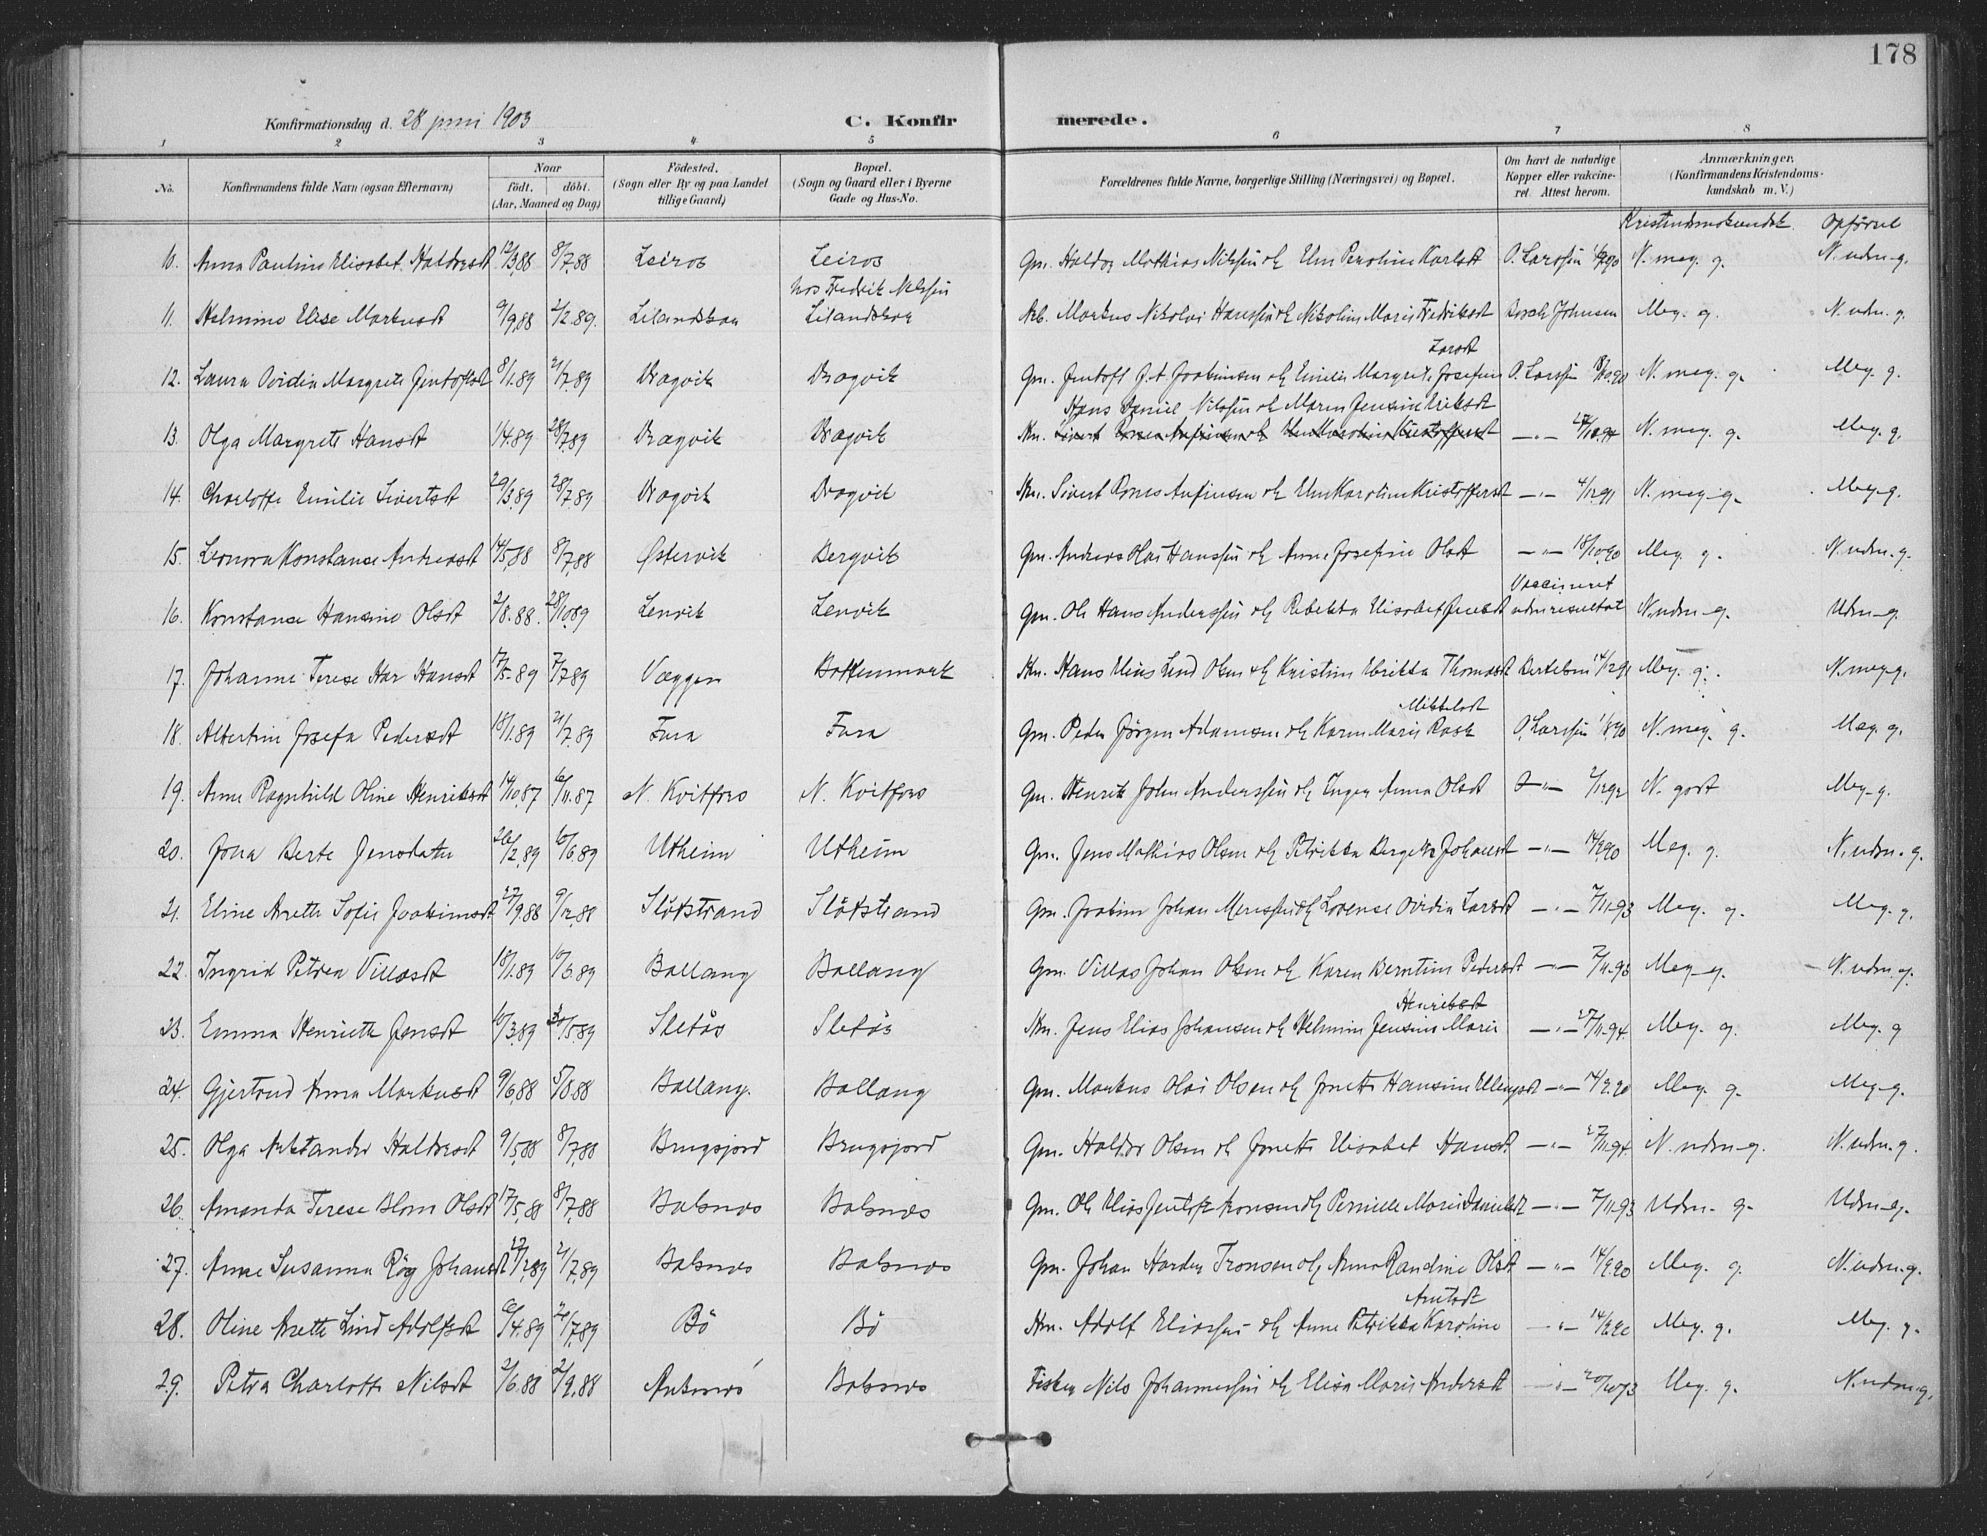 178
Konfirmationsdag d. 28 juni 1903
C. Konfirmerede.
1 2 3 4 5 6 7 8
No.
Konfirmandens fulde Navn (ogsaa Efternavn)
Naar
födt. döbt.
(Aar, Maaned og Dag)
Födested.
(Sogn eller By og paa Landet
tillige Gaard)
Bopæl.
(Sogn og Gaard eller i Byerne
Gade og Hus-No.
Forældrenes fulde Navne, borgerlige Stilling (Næringsvei) og Bopæl.
Om havt de naturlige
Kopper eller vakcine-
ret. Attest herom.
Anmærkninger.
(Konfirmandens Kristendoms-
kundskab m. V.)
Kristendomskundsk. Opførsel
10. Anna Pauline Elisabet Haldorsdt 12/3,88 8/7,88 Leiros Leiros Gm. Haldor Mathias Nilssen og Una Peroline Karlsdt O. Larssen N. meg. g. N. udm. g.
hos Fredrik Nilssen
11. Helmine Elise Markusdt 9/9,88 2/2.89. Lilandskar Lilandskar Arb. Markus Nikolai Hanssen og Nikoline Marie Fredriksdt Johnsen Meg. g. N. udm. g.
Larsdt
12. Laura Ovidia Margrete Jentoftsdt 8/1.89 21/7.89 Dragvik Dragvik Gm. Jentoft J. A. Joakimsen og Emilie Margrete Josefine O. Larssen N. meg. g. Meg. g.
Hans Daniel Nilssen og Maren Jensine Eriksdt
13. Olga Margrete Hansdt 1/4.89 28/7.89 Dragvik Dragvik Kn. Sivert Rones Anfinsen og Una Karoline Kristoffersdt —"— N. meg. g. Meg. g.
14. Charlotte Emilie Sivertsdt 29/3.89 28/7.89 Dragvik Dragvik Kn. Sivert Rones Anfinsen og Una Karoline Kristoffersdt —"— 4/12 91 N. meg. g. Meg. g.
15. Leonora Konstanse Andreasdt 14/5,88 8/7,88 Østervik Bergvik Gm. Andreas Olai Hanssen og Anne Josefine Olsdt —"— 18/10,90 Meg. g. N. udm. g.
Vaccineret
16. Konstanse Hansine Olsdt 2/8.88. 28/10 89 Lenvik Lenvik Gm. Ole Hans Anderssen og Rebekka Elisabet Jensdt uden resultat N. udm. g. Udm. g.
17. Johanne Terese Hansdt 17/5-89 7/7 89 Væggen Botkenmark Kn. Hans Elias Lind Olsen og Kristine Ulrikka Thomasdt 14/12 91 Meg. g. N. meg. g.
Mikkelsdt
18. Albertine Josefa Pedersdt 18/1.89 21/7.89 Fura Fura Gm. Peder Jørgen Adamsen og Karen Marie Rask O. Larssen N. meg. g. Meg. g.
19. Anne Ragnhild Oline Henriksdt 14/10,87 6/11.87 N. Kvitfors N. Kvitfors Gm. Henrik John Anderssen og Inger Anna Olsdt —"— 2/12 92 N. godt Meg. g.
20. Jona Berte Jensdatter 26/2,89 10/6.89 Utheim Utheim Gm. Jens Mathias Olsen og Petrikka Bergete Johansdt —"— 14/9 90 Meg. g. N. udm. g.
21. Eline Arette Sofie Joakimsdt 27/9,88 9/12,88 Sløkstrand Sløkstrand Gm. Joakim Johan Monssen og Lovense Ovidia Larsdt —"— 7/11-93 Meg. g. Meg. g.
22. Ingrid Petrea Villasdt 18/1.89 10/6.89 Ballang Ballang Gm. Villas Johan Olsen og Karen Berntine Pedersdt —"— 7/11-93 Meg. g. N. udm. g.
Henriksdt
23. Emma Henriette Jensdt 10/3,89 30/5 89 Sletås Sletås Kn. Jens Elias Johansen og Helmine Jensine Marie —"— 27/11-94. Meg. g. Meg. g
24. Gjertrud Anna Markusdt 9/6,88 5/8.88 Ballang. Ballang Gm. Markus Olai Olsen og Jonette Hansine Ellingsdt —"— 14/9.90 Meg. g. Meg. g.
25. Olga Aleksandra Haldorsdt 9/5,88 8/7,88 Brugsjord Brugsjord Gm. Haldor Olsen og Jonette Elisabet Hansdt —"— 27/11 94 N. udm. g. N. udm. g.
26. Amanda Terese Blom Olsdt 17/5,88 8/7,88 Balsnes Balsnes Gm. Ole Elias Jentoft Aronsen og Pernille Marie Danielsdt —"— 7/11-93 Udm. g. Udm. g.
27. Anne Susanna Røg Johansdt 27/1,89 21/7,89 Balsnes Balsnes Gm. Johan Harder Tronsen og Anna Randine Olsdt —"— 14/9.90 Meg. g. N. udm. g.
28. Oline Anette Lind Adolfsdt 6/4.89 21/7,89 Bö Bö Kn. Adolf Eliassen og Anne Petrikka Karoline —"— Meg. g. Meg. g.
29. Petra Charlotte Nilsdt 2/6.88 2/9.88 Balsnes Fisker Nils Johannessen og Elisa Marie Andersdt —"— Meg. g. N. udm. g.